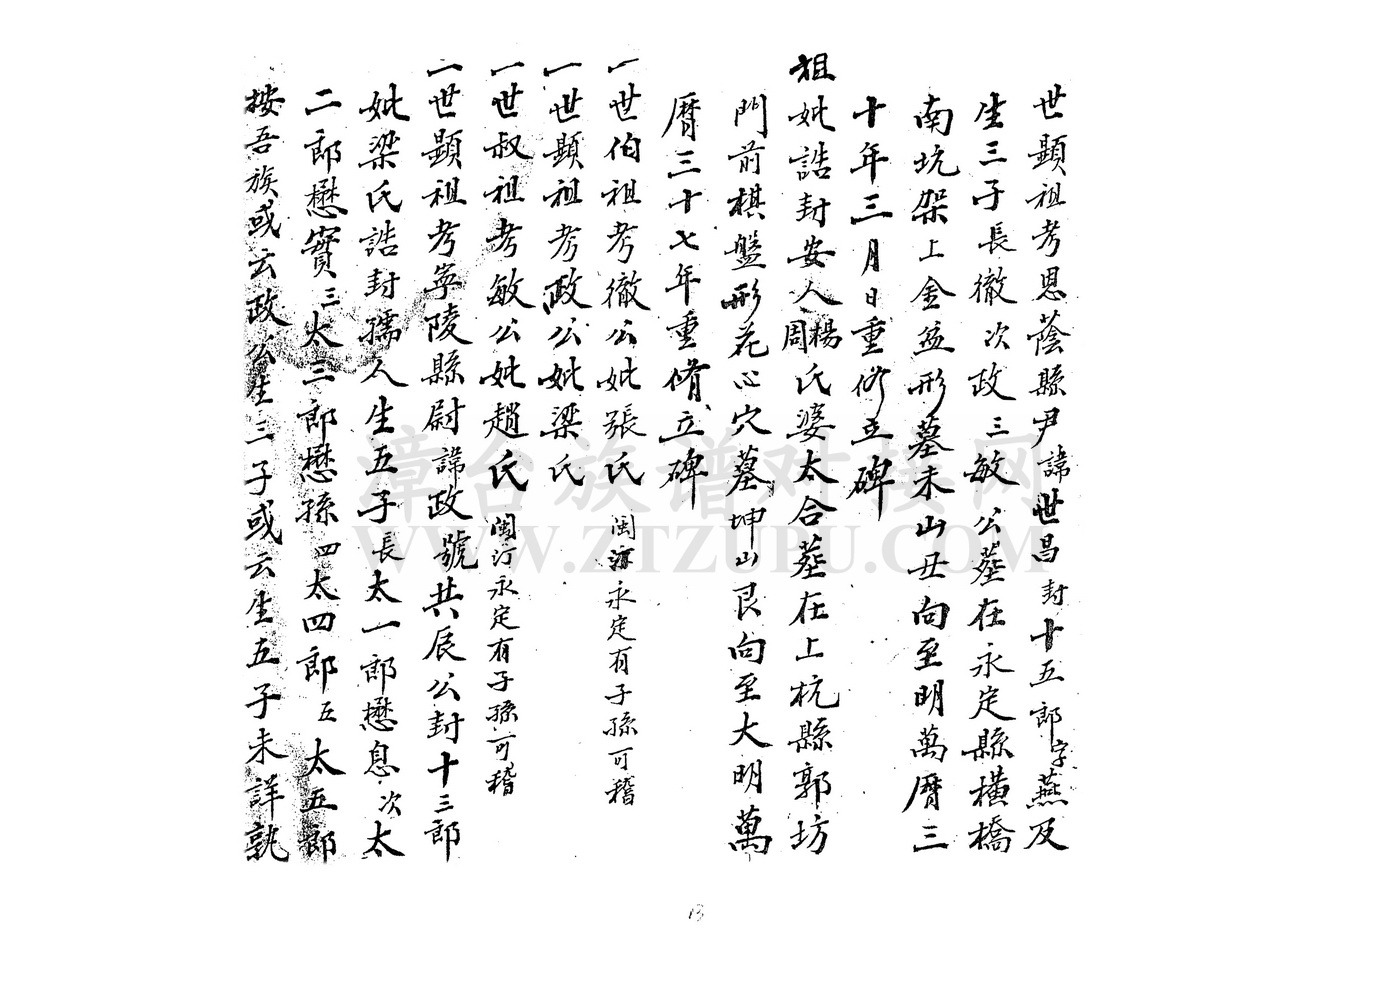 世顯祖考恩蔭縣尹諱世昌封十五郎字燕及
生三子長徹次政三敏公塟在永定縣橫橋
南坑架上金盆形墓未山丑向至明萬曆三
十年三月日重修立碑
祖妣誥封安人楊周氏婆太合塟在上杭縣郭坊
門前棋盤形花心穴墓坤山艮向至大明萬
曆三十七年重脩立碑
一世伯祖考徹公妣張氏 閩汀永定有子孫可稽
一世顯祖考政公妣梁氏
一世叔祖考敏公妣趙氏 閩汀永定有子孫可稽
一世顯祖考寧陵縣尉諱政號共辰公封十三郎
妣梁氏誥封孺人生五子長太一郎懋息次太
二郎懋賓三太三郎懋孫四太四郎五太五郎
按吾族或云政公生三子或云生五子未詳孰
漳台族谱对接网
WWW.ZTZUPU.COM
13